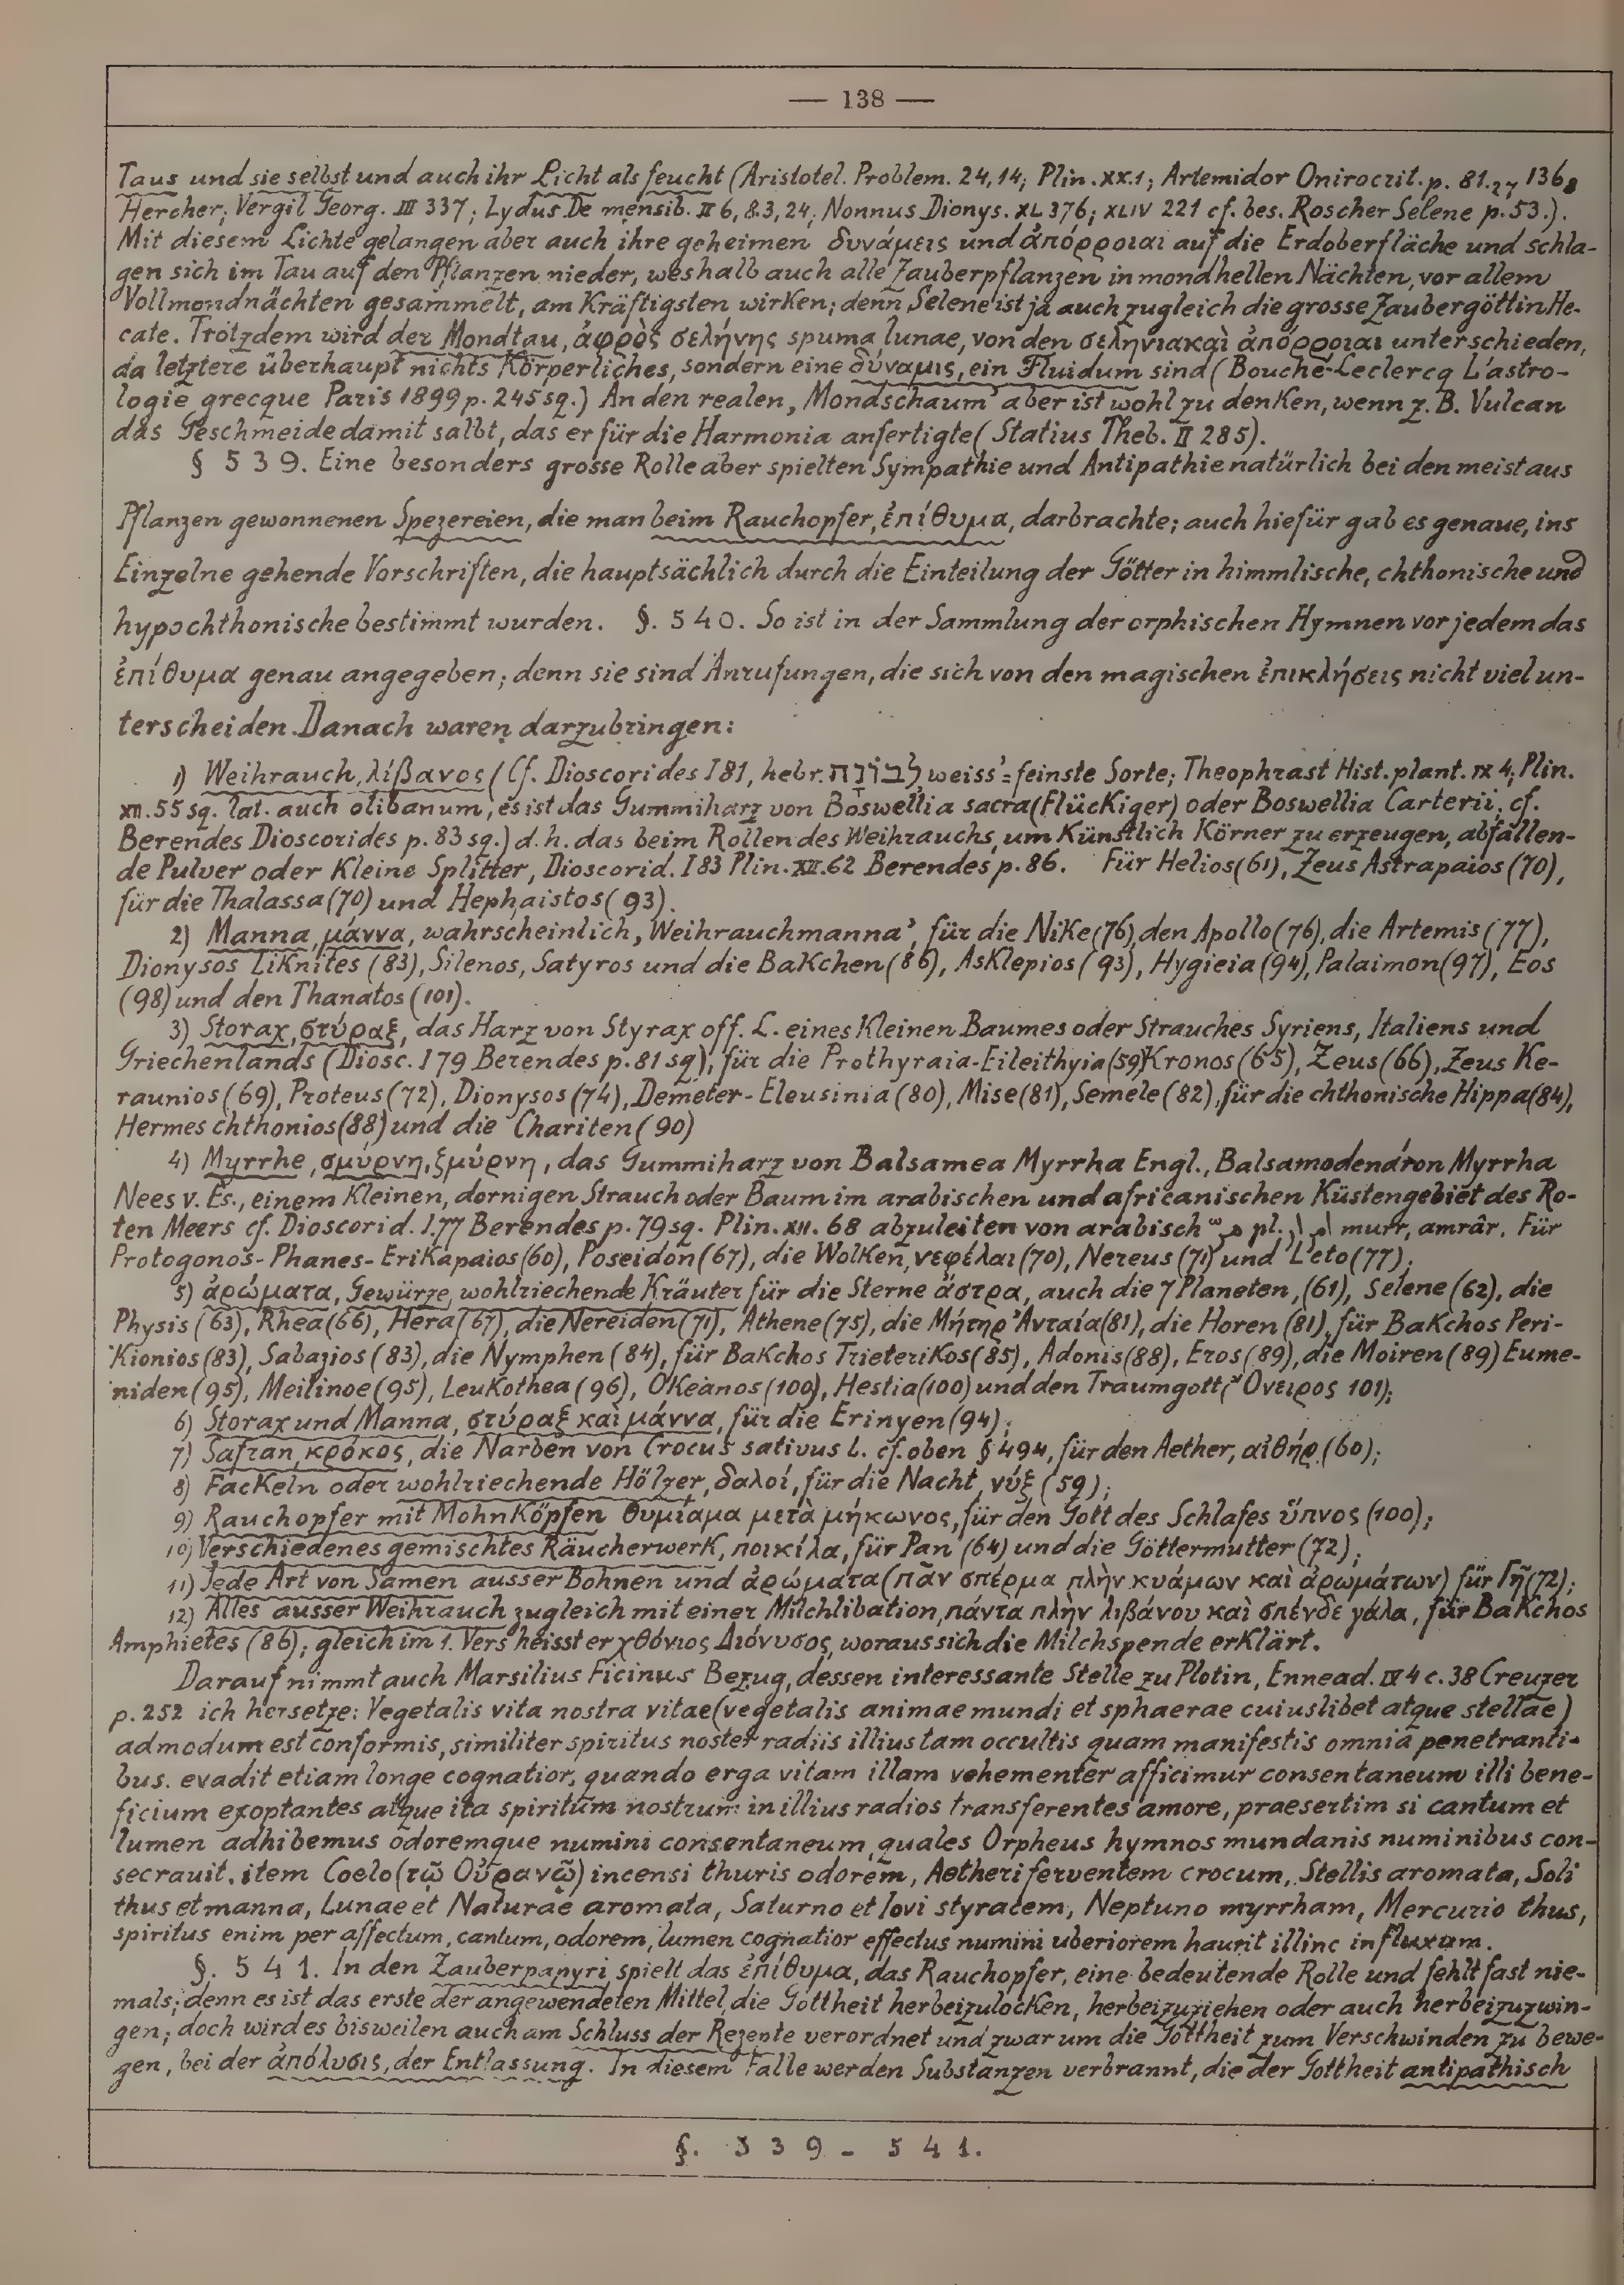 — 138 —
Taus und sie selbst und auch ihr Licht als feucht (Aristotel. Problem. 24,14; Plin. XX.1; Artemidor Onirocrit. p. 81.27 136,8
Hercher; Vergil Georg. III 337; Lydus De mensib. II 6, 8.3, 24; Nonnus Dionys. XL 376; XLIV 221 cf. bes. Roscher Selene p. 53.).
Mit diesem Lichte gelangen aber auch ihre geheimen δυνάμεις und ἀπόρροιαι auf die Erdoberfläche und schla-
gen sich im Tau auf den Pflanzen nieder, weshalb auch alle Zauberpflanzen in mondhellen Nächten, vor allem
Vollmondnächten gesammelt, am kräftigsten wirken; denn Selene ist ja auch zugleich die grosse Zaubergöttin He-
cate. Trotzdem wird der Mondtau, ἀφρὸς σελήνης spuma lunae, von den σεληνιακαὶ ἀπόρροιαι unterschieden,
da letztere überhaupt nichts Körperliches, sondern eine δύναμις, ein Fluidum sind (Bouché-Leclercq L'astro-
logie grecque Paris 1899 p. 245 sq.) An den realen ‚Mondschaum' aber ist wohl zu denken, wenn z. B. Vulcan
das Geschmeide damit salbt, das er für die Harmonia anfertigte (Statius Theb. II 285).
§ 539. Eine besonders grosse Rolle aber spielten Sympathie und Antipathie natürlich bei den meist aus
Pflanzen gewonnenen Spezereien, die man beim Rauchopfer, ἐπίθυμα, darbrachte; auch hiefür gab es genaue, ins
Einzelne gehende Vorschriften, die hauptsächlich durch die Einteilung der Götter in himmlische, chthonische und
hypochthonische bestimmt wurden. §. 540. So ist in der Sammlung der orphischen Hymnen vor jedem das
ἐπίθυμα genau angegeben; denn sie sind Anrufungen, die sich von den magischen ἐπικλήσεις nicht viel un-
terscheiden. Danach waren darzubringen:
1) Weihrauch, λίβανος (Cf. Dioscorides I 81, hebr. לְבוֹנָה weiss' = feinste Sorte; Theophrast Hist. plant. IX 4; Plin.
XII. 55 sq. lat. auch olibanum; es ist das Gummiharz von Boswellia sacra (Flückiger) oder Boswellia Carterii, cf.
Berendes Dioscorides p. 83 sq.) d. h. das beim Rollen des Weihrauchs, um künstlich Körner zu erzeugen, abfallen-
de Pulver oder kleine Splitter, Dioscorid. I 83 Plin. XII. 62 Berendes p. 86. Für Helios (61), Zeus Astrapaios (70),
für die Thalassa (70) und Hephaistos (93).
2) Manna, μάννα, wahrscheinlich ‚Weihrauchmanna', für die Nike (76), den Apollo (76), die Artemis (77),
Dionysos Liknites (83), Silenos, Satyros und die Bakchen (86), Asklepios (93), Hygieia (94), Palaimon (97), Eos
(98) und den Thanatos (101).
3) Storax, στύραξ, das Harz von Styrax off. L. eines kleinen Baumes oder Strauches Syriens, Italiens und
Griechenlands (Diosc. I 79 Berendes p. 81 sq.), für die Prothyraia-Eileithyia (59) Kronos (65), Zeus (66), Zeus Ke-
raunios (69), Proteus (72), Dionysos (74), Demeter-Eleusinia (80), Mise (81), Semele (82), für die chthonische Hippa (84),
Hermes chthonios (88) und die Chariten (90)
4) Myrrhe, σμύρνη, ξμύρνη, das Gummiharz von Balsamea Myrrha Engl., Balsamodendron Myrrha
Nees v. Es., einem kleinen, dornigen Strauch oder Baum im arabischen und africanischen Küstengebiet des Ro-
ten Meers cf. Dioscorid. I. 77 Berendes p. 79 sq. Plin. XII. 68 abzuleiten von arabisch pl. murr, amrâr. Für
Protogonos-Phanes-Erikapaios (60), Poseidon (67), die Wolken, νεφέλαι (70), Nereus (71) und Leto (77);
5) ἀρώματα, Gewürze, wohlriechende Kräuter für die Sterne ἄστρα, auch die 7 Planeten, (61), Selene (62), die
Physis (63), Rhea (66), Hera (67), die Nereiden (71), Athene (75), die Μήτηρ Ἀνταία (81), die Horen (81), für Bakchos Peri-
kionios (83), Sabazios (83), die Nymphen (84), für Bakchos Trieterikos (85), Adonis (88), Eros (89), die Moiren (89) Eume-
niden (95), Meilinoe (95), Leukothea (96), Okeanos (100), Hestia (100) und den Traumgott (Ὄνειρος 101);
6) Storax und Manna, στύραξ καὶ μάννα, für die Erinyen (94);
7) Safran, κρόκος, die Narben von Crocus sativus L. cf. oben § 494, für den Aether, αἰθήρ (60);
8) Fackeln oder wohlriechende Hölzer, δαλοί, für die Nacht, νύξ (59);
9) Rauchopfer mit Mohnköpfen θυμίαμα μετὰ μήκωνος, für den Gott des Schlafes ὕπνος (100);
10) Verschiedenes gemischtes Räucherwerk, ποικίλα, für Pan (64) und die Göttermutter (72);
11) Jede Art von Samen ausser Bohnen und ἀρώματα (πᾶν σπέρμα πλὴν κυάμων καὶ ἀρωμάτων) für Γῆ (72);
12) Alles ausser Weihrauch zugleich mit einer Milchlibation, πάντα πλὴν λιβάνου καὶ σπένδε γάλα, für Bakchos
Amphietes (86); gleich im 1. Vers heisst er χθόνιος Διόνυσος, woraus sich die Milchspende erklärt.
Darauf nimmt auch Marsilius Ficinus Bezug, dessen interessante Stelle zu Plotin, Ennead. IV 4 c. 38 Creuzer
p. 252 ich hersetze: Vegetalis vita nostra vitae (vegetalis animae mundi et sphaerae cuiuslibet atque stellae)
admodum est conformis, similiter spiritus noster radiis illius tam occultis quam manifestis omnia penetranti-
bus. evadit etiam longe cognatior, quando erga vitam illam vehementer afficimur consentaneum illi bene-
ficium exoptantes atque ita spiritum nostrum in illius radios transferentes amore, praesertim si cantum et
lumen adhibemus odoremque numini consentaneum, quales Orpheus hymnos mundanis numinibus con-
secrauit. item Coelo (τῷ Οὐρανῷ) incensi thuris odorem, Aetheri ferventem crocum, Stellis aromata, Soli
thus et manna, Lunae et Naturae aromata, Saturno et Iovi styracem, Neptuno myrrham, Mercurio thus,
spiritus enim per affectum, cantum, odorem, lumen cognatior effectus numini uberiorem haurit illinc influxum.
§. 541. In den Zauberpapyri spielt das ἐπίθυμα, das Rauchopfer, eine bedeutende Rolle und fehlt fast nie-
mals; denn es ist das erste der angewendeten Mittel, die Gottheit herbeizulocken, herbeizuziehen oder auch herbeizuzwin-
gen; doch wird es bisweilen auch am Schluss der Rezepte verordnet und zwar um die Gottheit zum Verschwinden zu bewe-
gen, bei der ἀπόλυσις, der Entlassung. In diesem Falle werden Substanzen verbrannt, die der Gottheit antipathisch
§. 539 - 541.